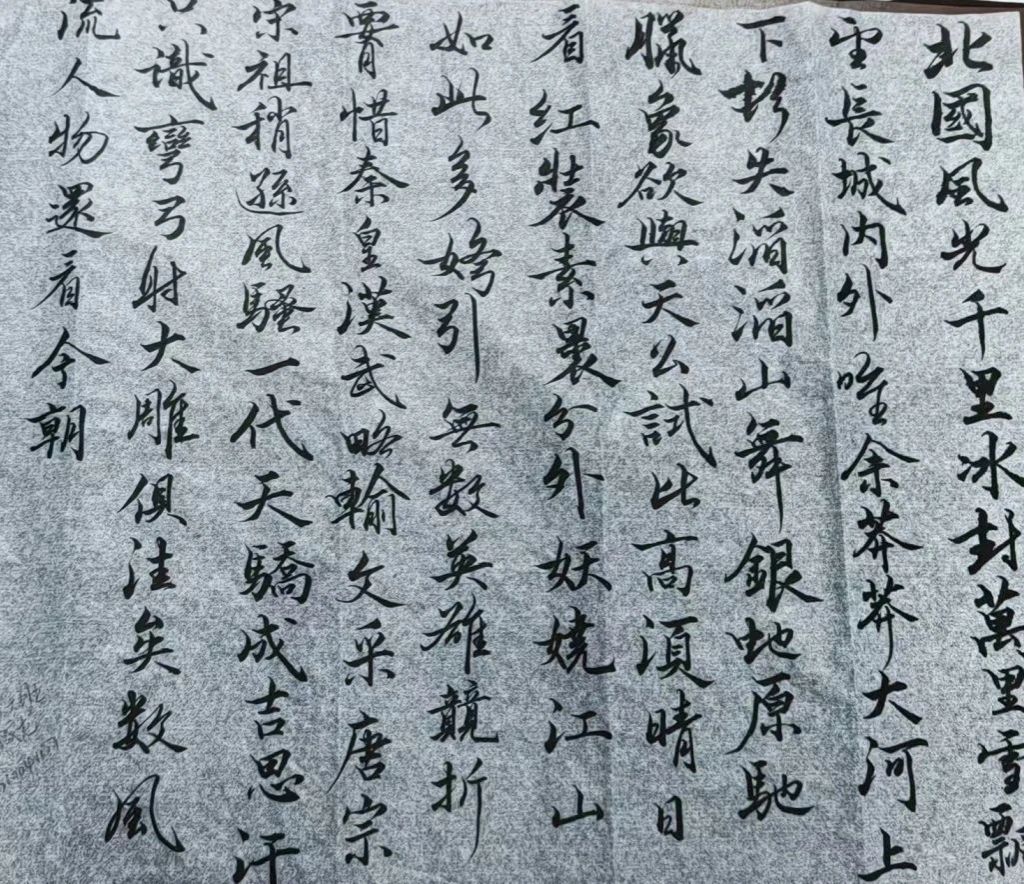 北國風光千里冰封萬里雪飄
望長城内外唯余莽莽大河上
下頓失滔滔山舞銀蛇原馳
臘象欲與天公試比高須晴日
看紅裝素裹分外妖嬈江山
如此多嬌引無数英雄競折
腰惜秦皇漢武略輸文采唐宗
宋祖稍遜風騷一代天驕成吉思汗
只識彎弓射大雕俱往矣数風
流人物還看今朝